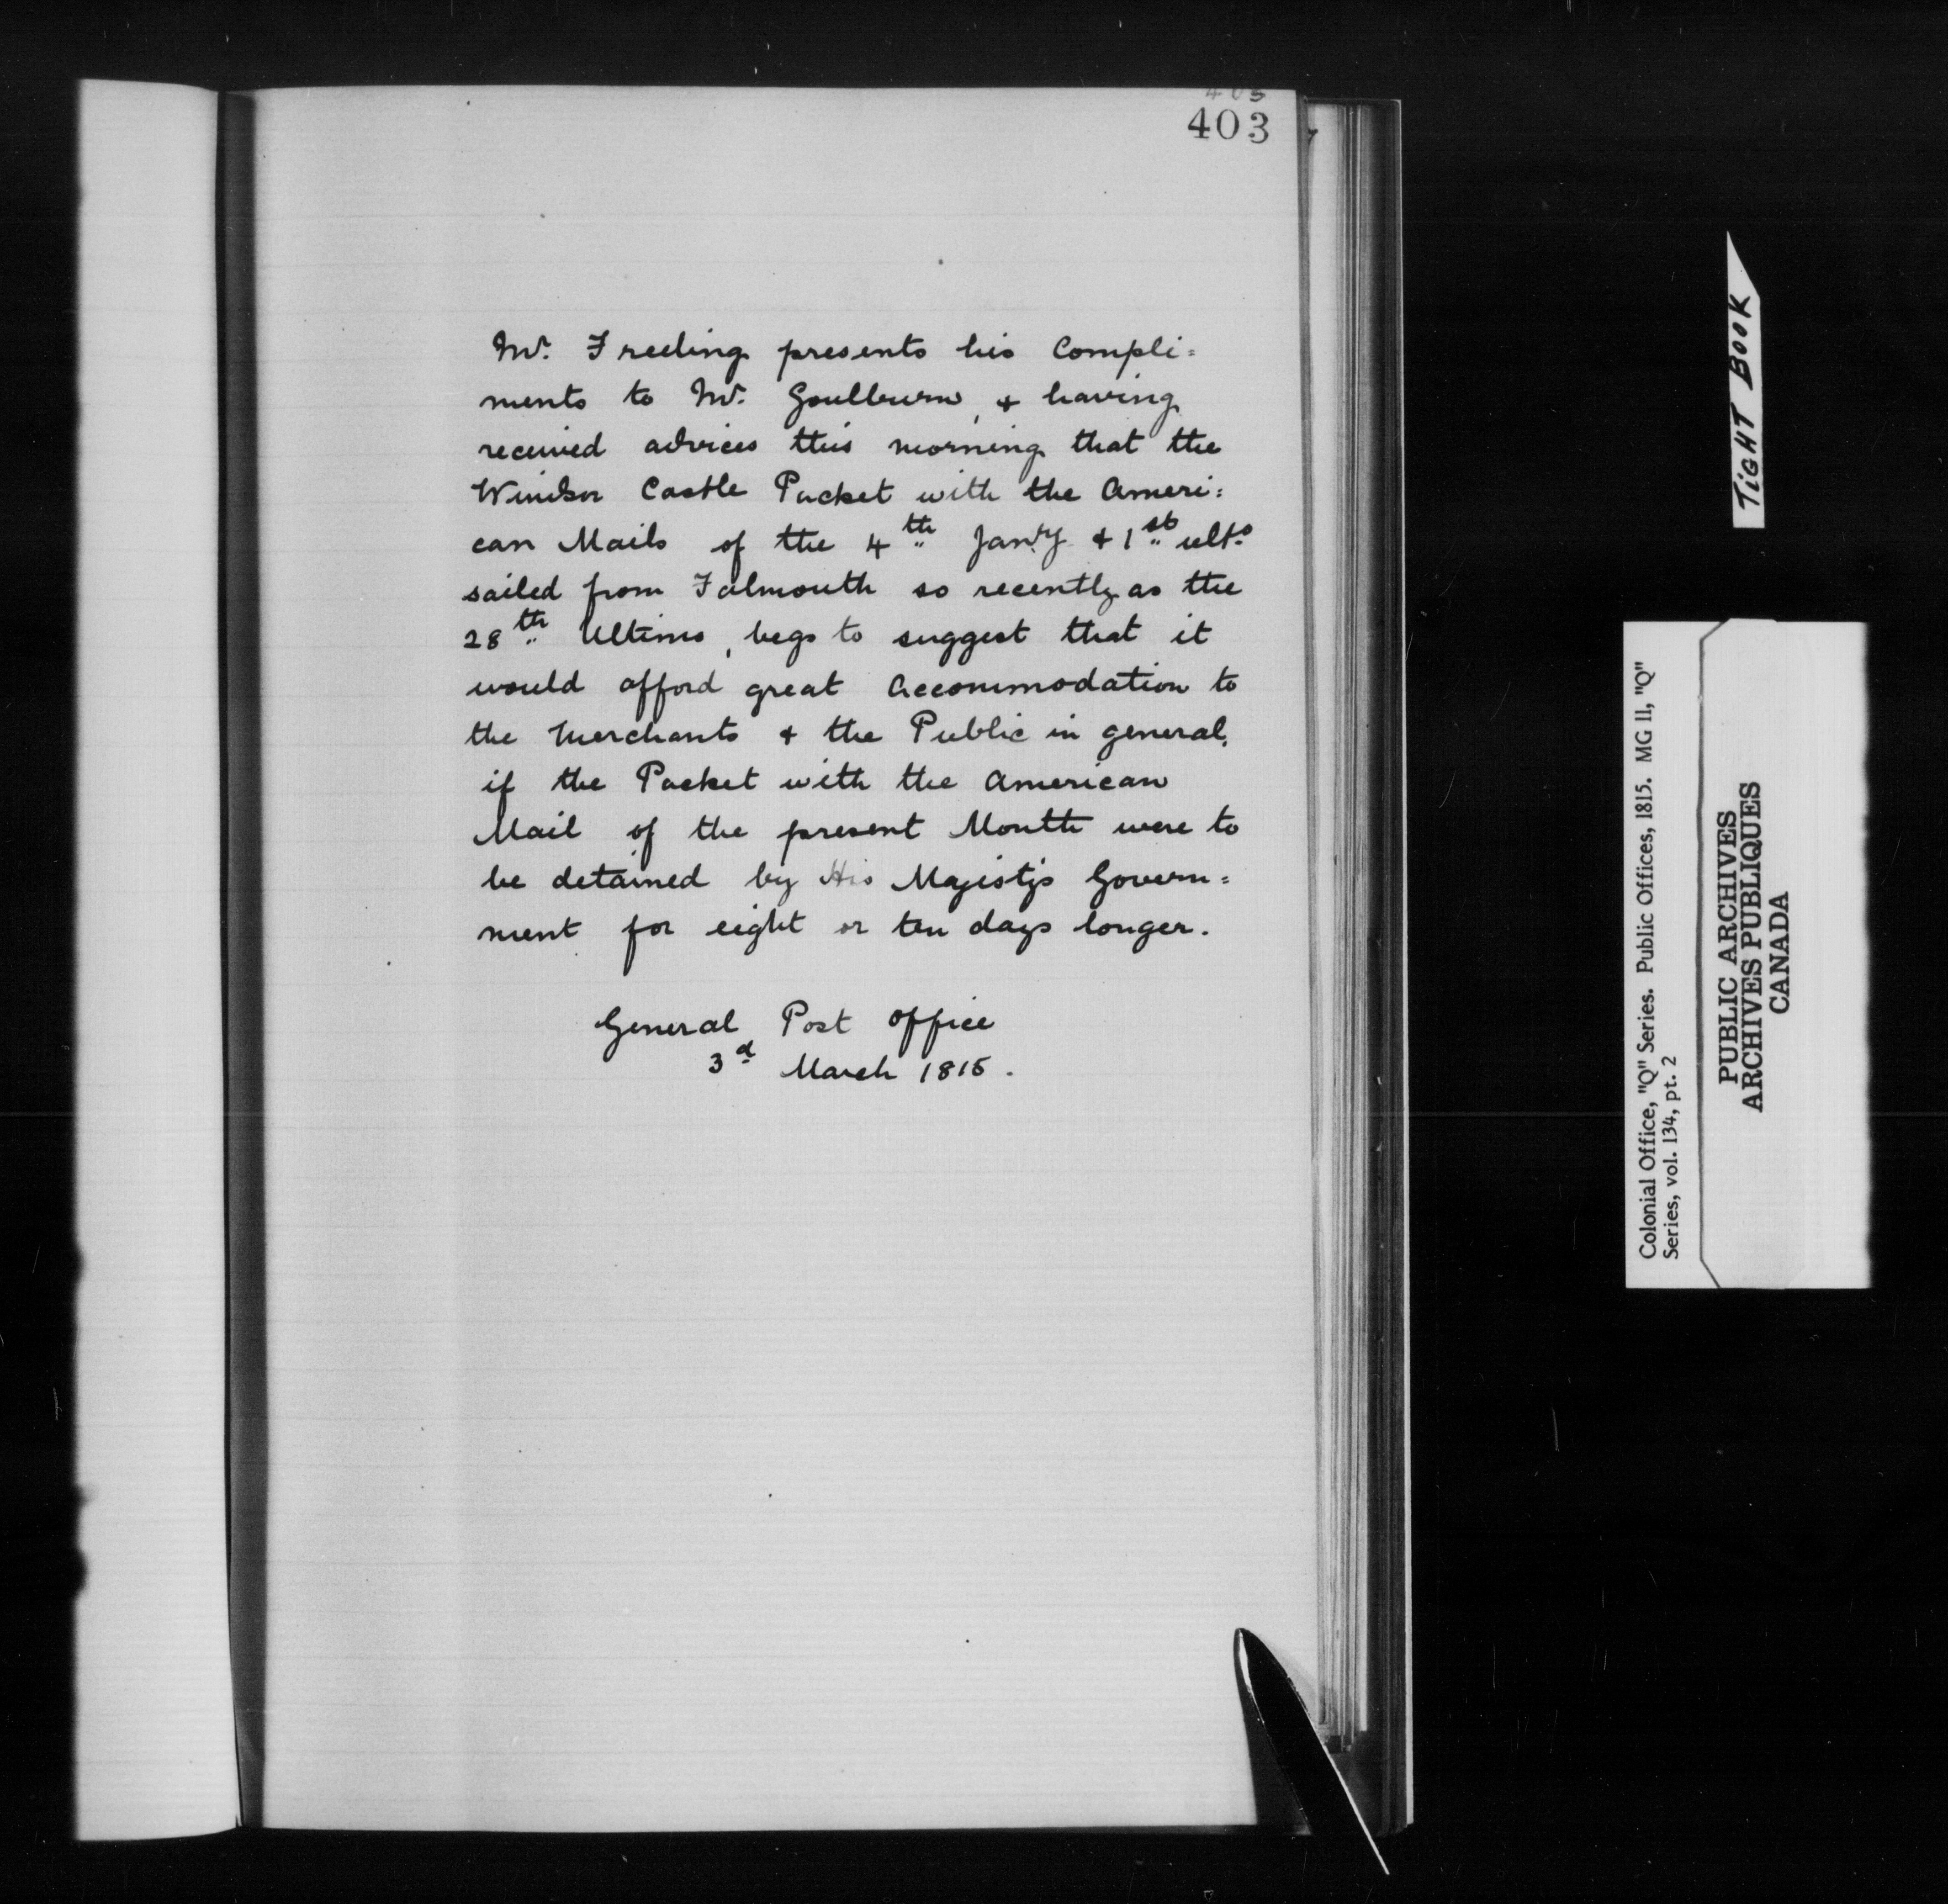 403
403
Mr. Freeling presents his Compli=
ments to Mr. Goulburn, & having
received advices this morning that the
Windsor Castle Packet with the Ameri=
can Mails of the 4th Jan'y & 1st ulto
sailed from Falmouth so recently as the
28th Ultimo, begs to suggest that it
would afford great Accommodation to
the Merchants & the Public in general,
if the Packet with the American
Mail of the present Month were to
be detained by His Majestys Govern=
ment for eight or ten days longer.
General Post Office
3d March 1815.
TIGHT BOOK
Colonial Office, "Q" Series. Public Offices, 1815. MG 11, "Q"
Series, vol. 134, pt. 2
PUBLIC ARCHIVES
ARCHIVES PUBLIQUES
CANADA